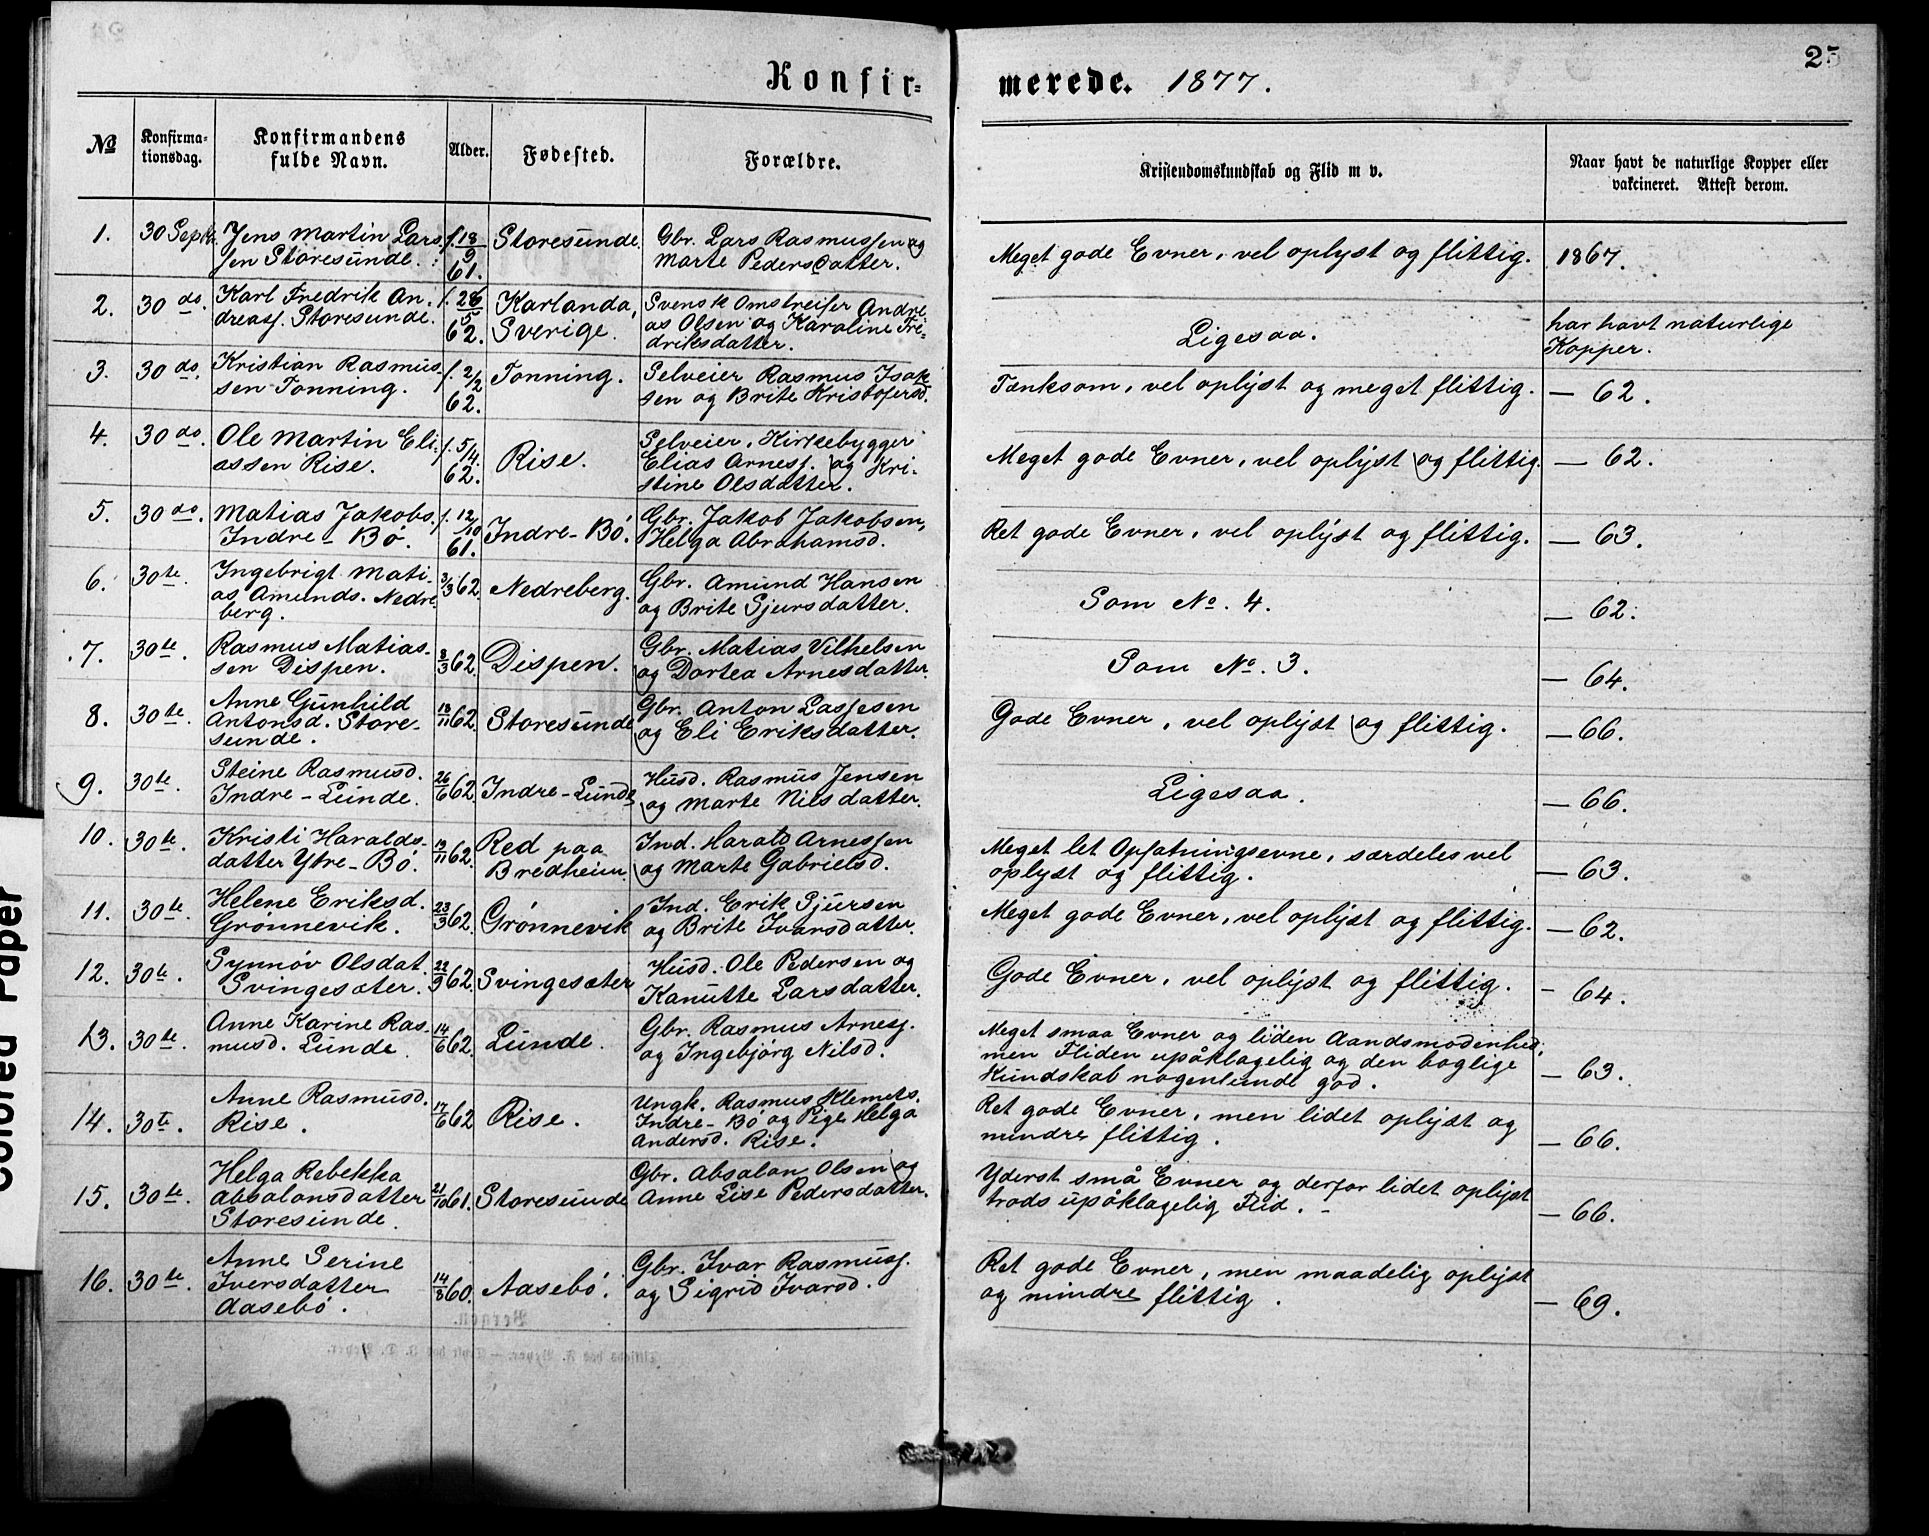 Konfir=
merede. 1877.
25
№
Konfirma-
tionsdag.
Konfirmandens
fulde Navn.
Alder.
Fødested.
Forældre.
Kristendomskundskab og Flid m v.
Naar havt de naturlige Kopper eller
vakcineret. Attest derom.
1. 30 Septr. Jens Martin Lars
sen Storesunde.
f. 18/9
61.
Storesunde.
Gbr. Lars Rasmussen og
Marte Pedersdatter.
Meget gode Evner, vel oplyst og flittig. 1867.
2. 30 do. Karl Fredrik An.
dreass. Storesunde.
f. 26/5
62.
Karlanda,
Sverige.
Svensk Omstreifer Andre
as Olsen og Karoline Fre-
driksdatter.
Ligesaa.
har havt naturlige
Kopper.
3. 30 do. Kristian Rasmus-
sen Tonning.
f. 2/2
62.
Tonning.
Selveier Rasmus Isak
sen og Brite Kristofersd.
Tænksom, vel oplyst og meget flittig. — 62.
4. 30 do. Ole Martin Eli
assen Rise.
f. 5/4.
62.
Rise.
Selveier, Kirkebygger
Elias Arness. og Kri-
stine Olsdatter.
Meget gode Evner, vel oplyst og flittig. — 62.
5. 30 do. Matias Jakobs.
Indre-Bö.
f. 12/10
61.
Indre-Bö.
Gbr. Jakob Jakobsen,
Helga Abrahamsd.
Ret gode Evner, vel oplyst og flittig. — 63.
6. 30te. Ingebrigt Mati-
as Amunds. Nedre
berg.
3/3 62.
Nedreberg.
Gbr. Amund Hansen
og Brite Sjursdatter.
Som No. 4. — 62.
7. 30te. Rasmus Matias-
sen Dispen.
8/3 62.
Dispen.
Gbr. Matias Vilhelsen
og Dortea Arnesdatter.
Som No. 3. — 64.
8. 30te. Anne Gunhild
Antonsd. Store-
sunde.
18/11 62.
Storesunde
Gbr. Anton Lassesen
og Eli Eriksdatter.
Gode Evner, vel oplyst og flittig. — 66.
9. 30te. Steine Rasmusd.
Indre-Lunde.
26/6 62.
Indre-Lunde
Husd. Rasmus Jensen
og Marte Nilsdatter.
Ligesaa. — 66.
10. 30te. Kristi Haralds-
datter Ytre-Bö.
13/11 62.
Red paa
Bredheim.
Ind. Harald Arnessen
og Marte Gabrielsd.
Meget let Opfatningsevne, særdeles vel
oplyst og flittig. — 63.
11. 30te. Helene Eriksd.
Grönnevik.
23/3 62.
Grönnevik
Ind. Erik Sjursen
og Brite Ivarsdatter.
Meget gode Evner, vel oplyst og flittig. — 62.
12. 30te. Synnöv Olsdat.
Svingesæter.
22/3 62.
Svingesæter
Husd. Ole Pedersen og
Kanutte Larsdatter.
Gode Evner, vel oplyst og flittig. — 64.
13. 30te. Anne Karine Ras-
musd. Lunde.
14/6 62.
Lunde.
Gbr. Rasmus Arness.
og Ingebjörg Nilsd.
Meget smaa Evner og liden Aandsmodenhed,
men Fliden upåklagelig og den boglige
Kundskab nogenlunde god. — 63.
14. 30te. Anne Rasmusd.
Rise.
17/6 62
Rise.
Ungk. Rasmus Klemets.
Indre-Bö og Pige Helga
Andersd. Rise.
Ret gode Evner, men lidet oplyst og
mindre flittig. — 66.
15. 30te. Helga Rebekka
Absalonsdatter
Storesunde.
21/10 61.
Storesunde
Gbr. Absalon Olsen og
Anne Lise Pedersdatter.
Yderst små Evner og derfor lidet oplyst
trods upåklagelig Flid. — 66.
16. 30te. Anne Serine
Iversdatter
Aasebö.
14/8 60.
Aasebö.
Gbr. Ivar Rasmuss.
og Sigrid Ivarsd.
Ret gode Evner, men maadelig oplyst
og mindre flittig. — 69.
Colored Paper